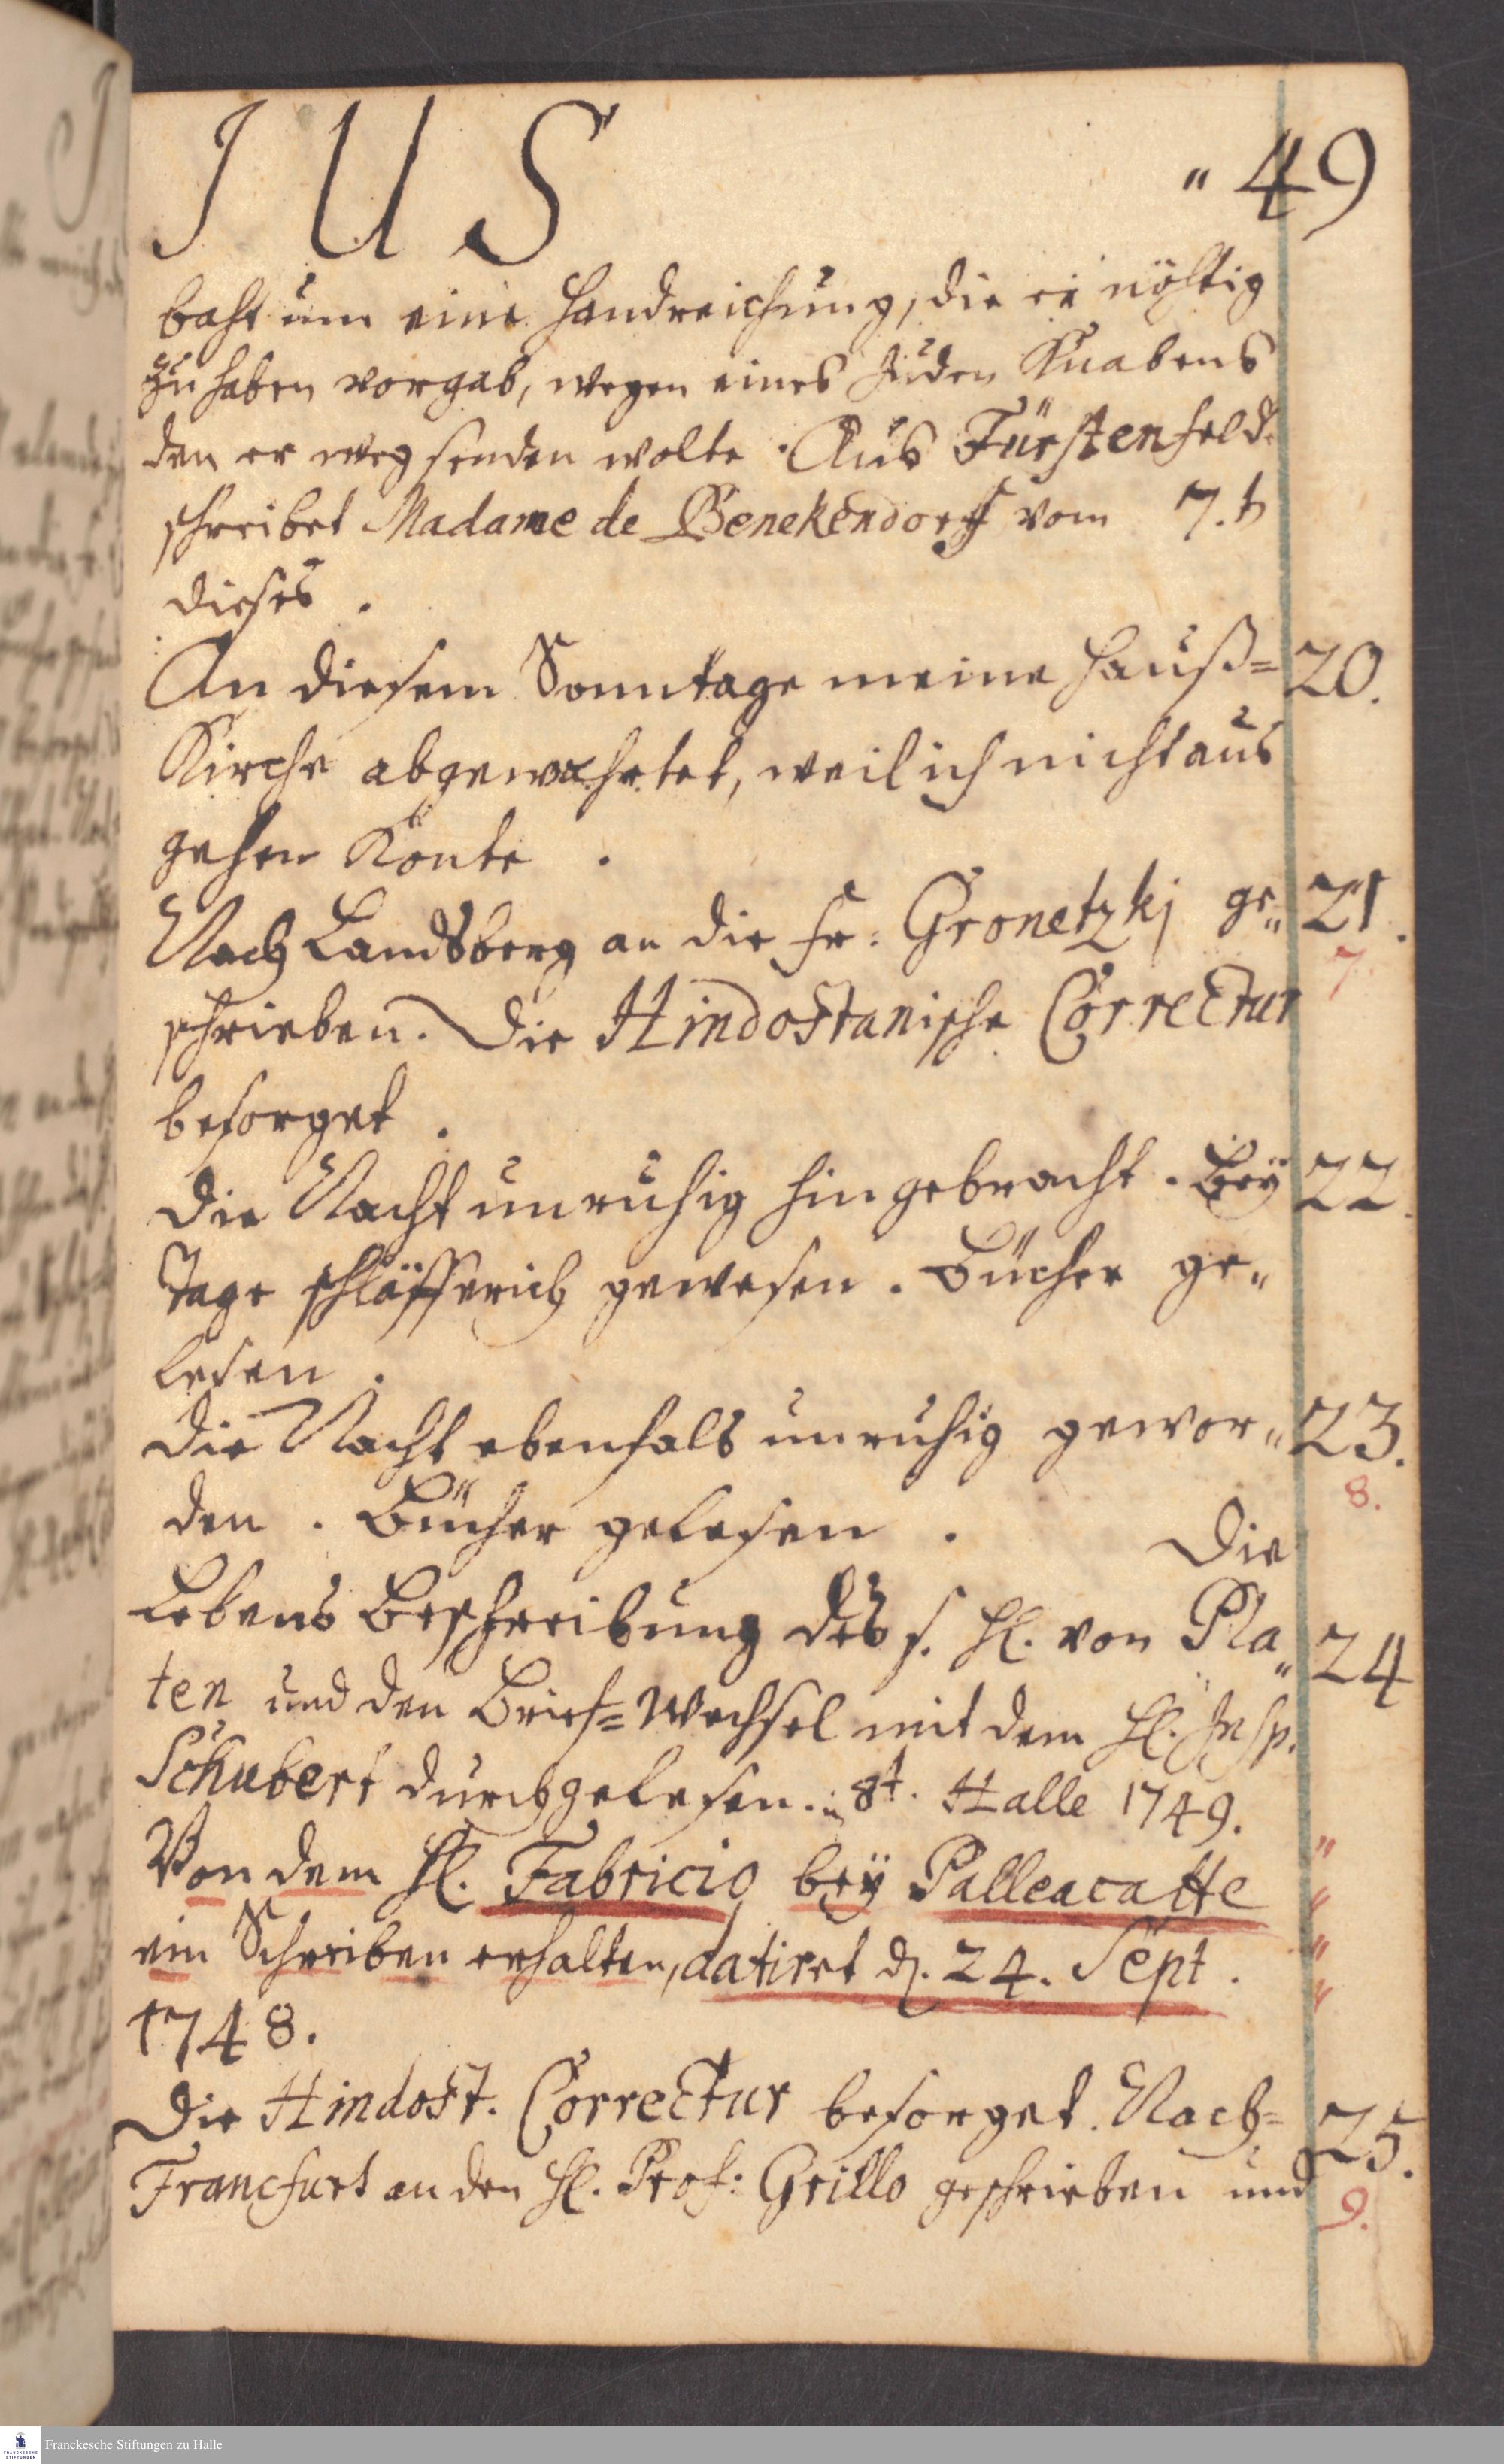 J U S
" 49
baht um eine Handreichung, die er nöhtig
zu haben vorgab, wegen eines Juden Knabens
den er weg senden wolte. Aus Fürstenfeld.
schreibet Madame de Benekendorff vom 7.t
dieses.
An diesem Sonntage meine Hauß= 20.
Kirche abgewahrtet, weil ich nicht aus
gehen Könte.
Nach Landsberg an die Fr: Gronetzkj ge„ 21.
7.
schrieben. Die Hindostanische Correctur
besorget.
Die Nacht unruhig hingebracht. Bey 22.
Tage schläfferich gewesen. Bücher ge„
lesen.
Die Nacht ebenfals unruhig gewor„ 23.
8.
den. Bücher gelesen. Die
Lebens Beschreibung des s. H. von Pla„ 24
ten und den Brief=Wechsel mit dem H. Insp.
Schubert durchgelesen. in 8t. Halle 1749.
Von dem H. Fabricio bey Palleacatte "
ein Schreiben erhalten, datiret d. 24. Sept.
1748.
Die Hindost. Correctur besorget. Nach= 25.
Francfurt an den H. Prof: Grillo geschrieben und
9.
Franckesche Stiftungen zu Halle